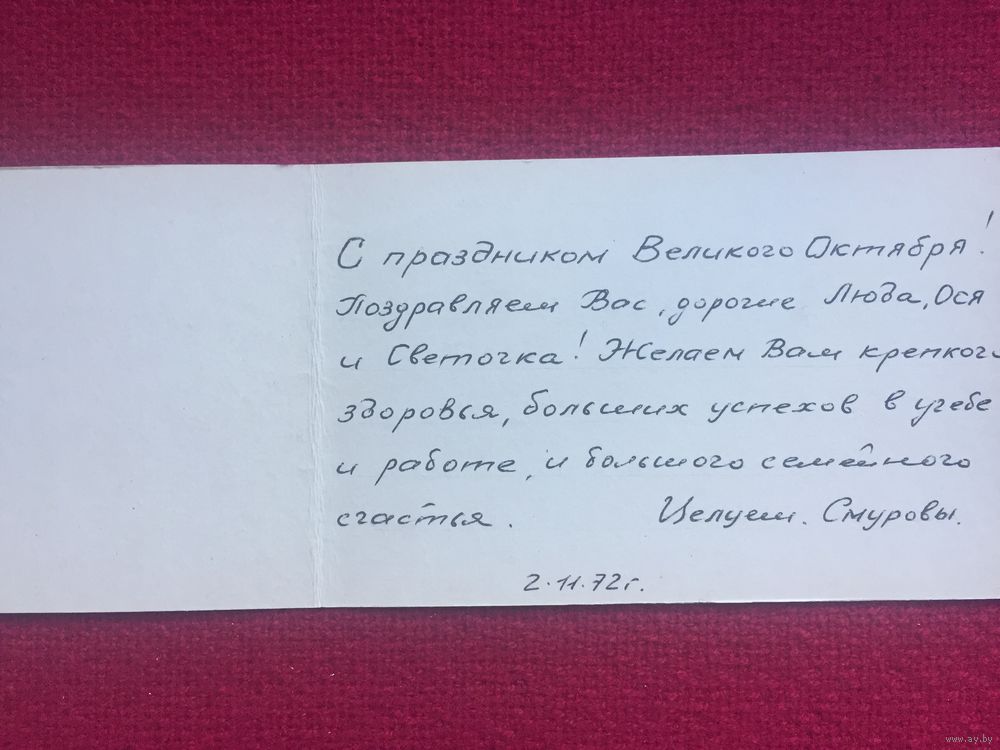 С праздником Великого Октября!
Поздравляем Вас, дорогие Люда, Ося
и Светочка! Желаем Вам крепкого
здоровья, больших успехов в учебе
и работе, и большого семейного
счастья. Целуем. Смуровы.
2.11.72г.
www.ay.by